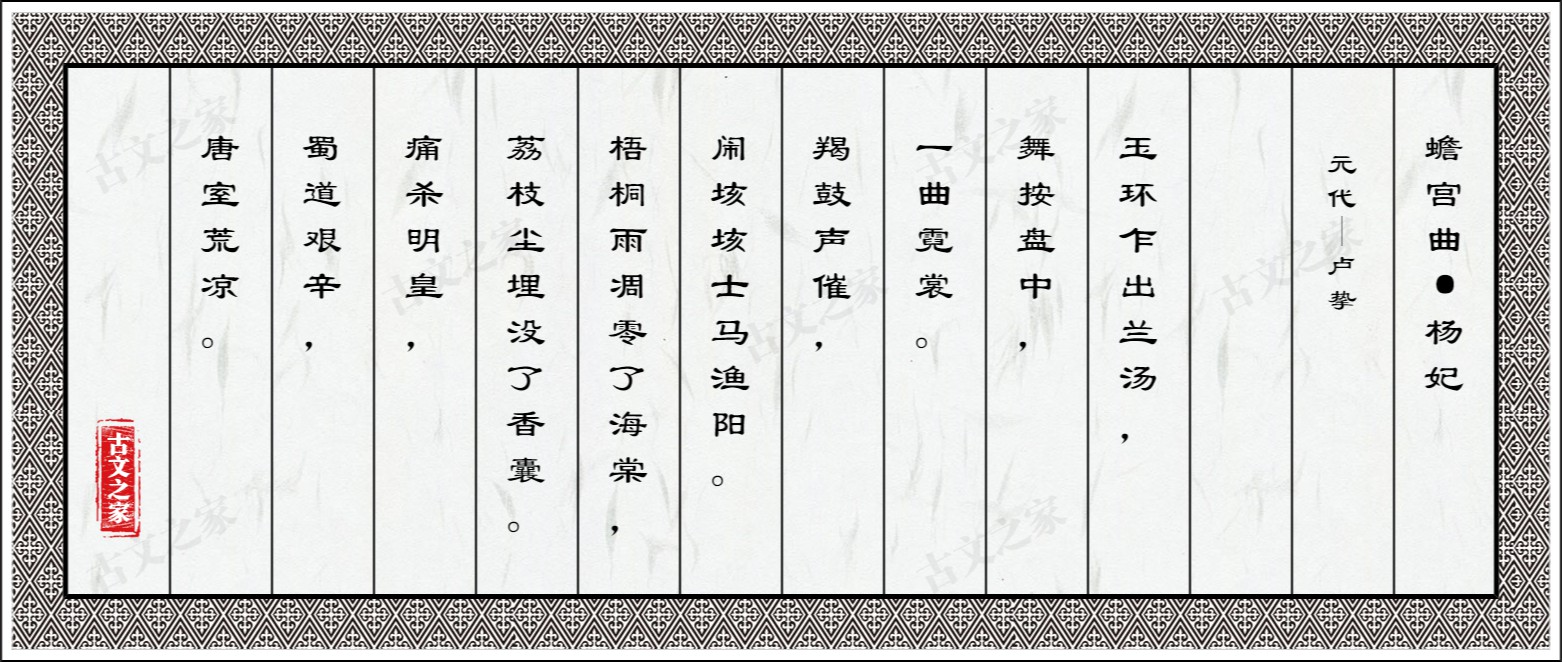 蟾宫曲●杨妃
元代—卢挚
玉环乍出兰汤，
舞按盘中，
一曲霓裳。
羯鼓声催，
闹垓垓士马渔阳。
梧桐雨凋零了海棠，
荔枝尘埋没了香囊。
痛杀明皇，
蜀道艰辛，
唐室荒凉。
古文之家